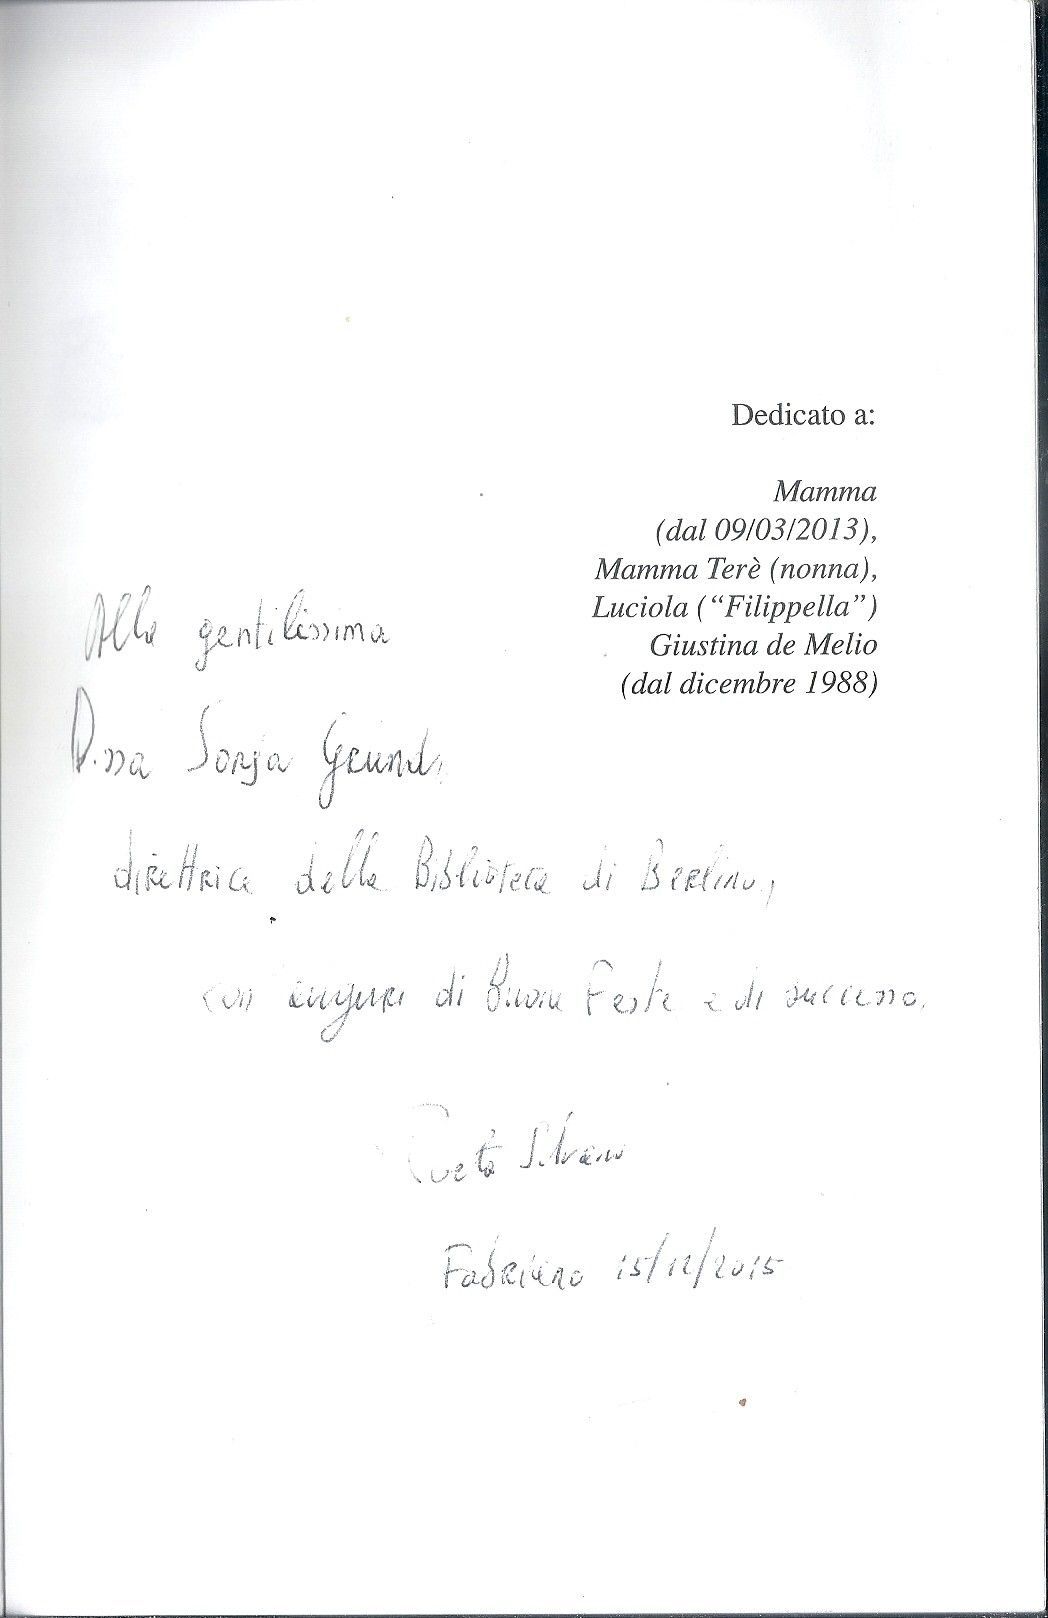 Dedicato a:
Mamma
(dal 09/03/2013),
Mamma Terè (nonna),
Luciola ("Filippella")
Giustina de Melio
(dal dicembre 1988)
Alla gentilissima
D.ssa Sonja Grund,
direttrice della Biblioteca di Berlino,
con auguri di Buone Feste e di successo.
Fabriano 15/12/2015